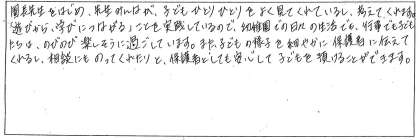 園長先生をはじめ、先生みんなが、子どもひとりひとりをよく見てくれているし、考えてくれます。
「遊びから、学びにつなげる」ことを実践しているので、幼稚園での日々の生活でも、行事でも子ども
たちは、のびのび楽しそうに過ごしています。また、子どもの様子を細やかに保護者に伝えて
くれるし、相談にものってくれたりと、保護者としても安心して子どもを預けることができます。